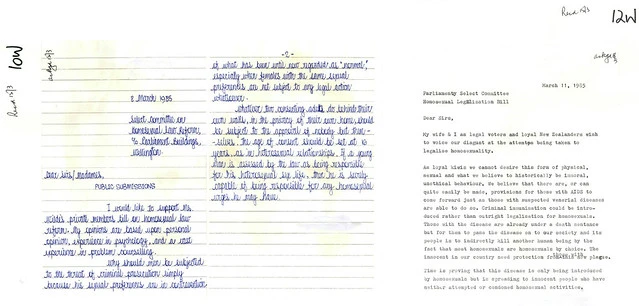 10W
Recd 15/3
8 March 1985
Select Committee on
Homosexual Law Reform,
c/o Parliament Buildings,
Wellington.
Dear Sirs/Madames,
PUBLIC SUBMISSIONS
I would like to support Ms
Wilde's private members bill on homosexual law
reform. My opinions are based upon personal
opinion, experience in psychology, and as
experience in problem counselling.
Why should men be subjected
to the threat of criminal prosecution simply
because his sexual preference is in contravention
-2-
of what has been until now regarded as "normal",
especially when females with the same sexual
preferences are not subject to any legal action
whatsoever.
Whatever two consenting adults do behind their
own walls, in the privacy of their own home, should
be subject to the approval of nobody but them-
selves. The age of consent should be set at 16
years, as in heterosexual relationships. If a young
man is assessed by the law as being responsible
for his heterosexual sex life, then he is surely
capable of being responsible for any homosexual
urges he may have.
Recd 15/3
12W
March 11, 1985
Parliamentary Select Committee
Homosexual Legalisation Bill
Dear Sirs,
My wife & I as legal voters and loyal New Zealanders wish
to voice our disgust at the attempts being taken to
legalise homosexuality.
As loyal kiwis we cannot desire this form of physical,
sexual and what we believe to historically be immoral,
unethical behaviour. We believe that there are, or can
quite easily be made, provisions for those with AIDS to
come forward just as those with suspected venerial diseases
are able to do so. Criminal immunition could be intro-
duced rather than outright legalisation for homosexuals.
Those with the disease are already under a death sentence
but for them to pass the disease on to our society and its
people is to indirectly kill another human being by the
fact that most homosexuals are homosexuals by choice. The
innocent in our country need protection from plague.
Time is proving that this disease is only being introduced
by homosexuals and is spreading to innocent people who have
neither attempted or condoned homosexual activities.